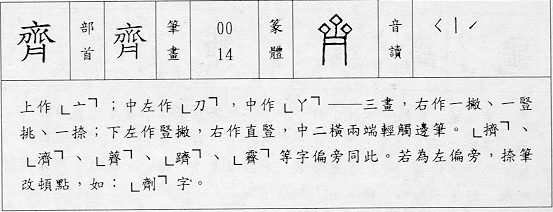 齊 部首 齊 筆畫 00 14 篆體 音讀 ㄑㄧˊ
上作「亠」；中左作「刀」，中作「丫」——三畫，右作一撇、一豎
挑、一捺；下左作豎撇，右作直豎，中二橫兩端輕觸邊筆。「擠」、
「濟」、「薺」、「躋」、「霽」等字偏旁同此。若為左偏旁，捺筆
改頓點，如：「劑」字。